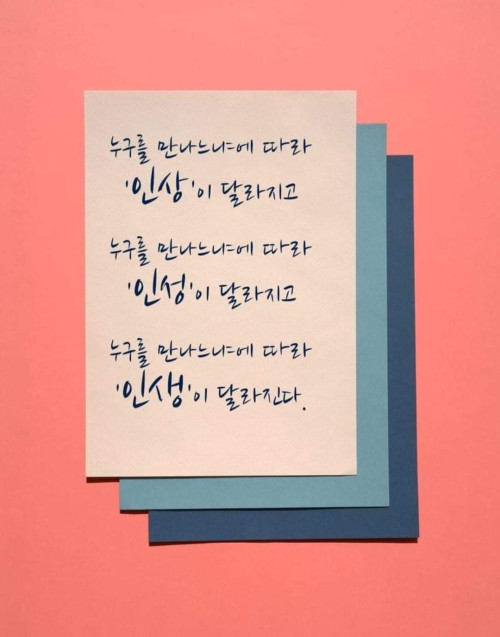 누구를 만나느냐에 따라
'인상'이 달라지고
누구를 만나느냐에 따라
'인성'이 달라지고
누구를 만나느냐에 따라
'인생'이 달라진다.